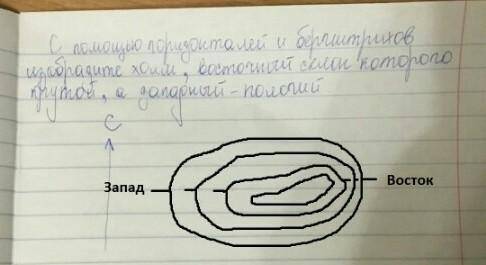 С помощью горизонталей и бергштрихов
изобразите холм, восточный склон которого
крутой, а западный - пологий
С
Запад
Восток